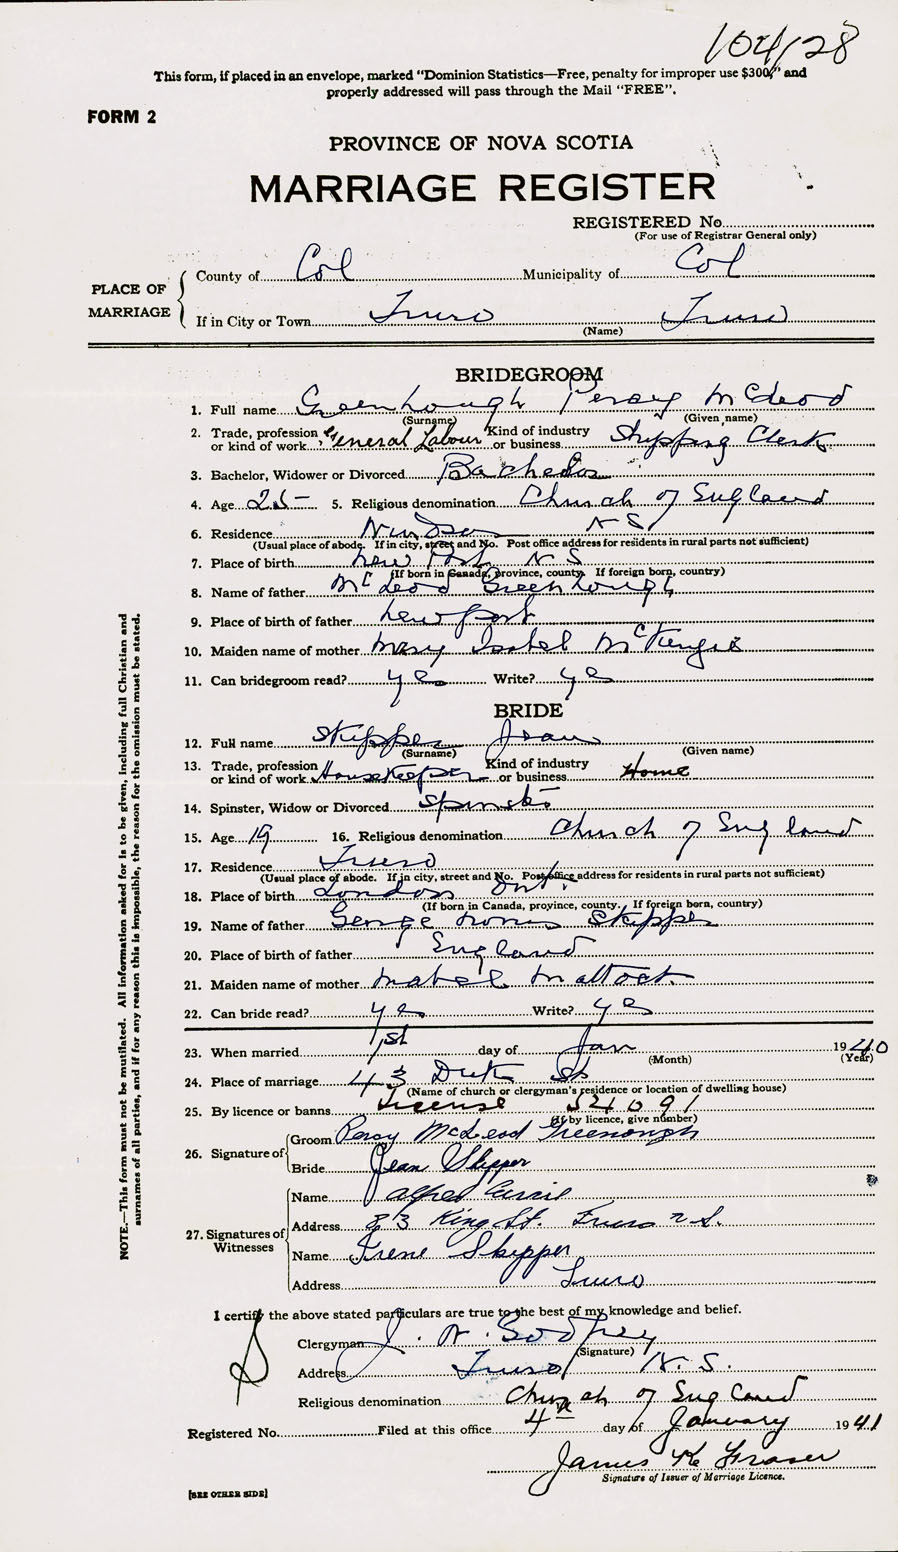 104128
This form, if placed in an envelope, marked "Dominion Statistics—Free, penalty for improper use $300," and
properly addressed will pass through the Mail "FREE".
FORM 2
PROVINCE OF NOVA SCOTIA
MARRIAGE REGISTER
REGISTERED No.
(For use of Registrar General only)
PLACE OF MARRIAGE
County of Col Municipality of Col
If in City or Town Truro Truro
(Name)
BRIDEGROOM
1. Full name Greenhough Percy McLeod
(Surname) (Given name)
2. Trade, profession or kind of work General Labour Kind of industry or business Shipping Clerk
3. Bachelor, Widower or Divorced Bachelor
4. Age 25 5. Religious denomination Church of England
6. Residence Windsor N S
(Usual place of abode. If in city, street and No. Post office address for residents in rural parts not sufficient)
7. Place of birth New Port N S
(If born in Canada, province, county. If foreign born, country)
8. Name of father McLeod Greenhough
9. Place of birth of father Newport
10. Maiden name of mother Mary Isabel McKenzie
11. Can bridegroom read? yes Write? yes
BRIDE
12. Full name Skipper Jean
(Surname) (Given name)
13. Trade, profession or kind of work Housekeeper Kind of industry or business Home
14. Spinster, Widow or Divorced Spinster
15. Age 19 16. Religious denomination Church of England
17. Residence Truro
(Usual place of abode. If in city, street and No. Post office address for residents in rural parts not sufficient)
18. Place of birth London Ont.
(If born in Canada, province, county. If foreign born, country)
19. Name of father George Skipper
20. Place of birth of father England
21. Maiden name of mother Mabel Mattock
22. Can bride read? yes Write? yes
23. When married 1st day of Jan 1940
(Month) (Year)
24. Place of marriage 43 St
(Name of church or clergyman's residence or location of dwelling house)
25. By licence or banns License 54091
(If by licence, give number)
26. Signature of Groom Percy McLeod Greenough
Bride Jean Skipper
27. Signatures of Witnesses
Name Alfred
Address 83 King St. Truro N.S.
Name Irene Skipper
Address Truro
I certify the above stated particulars are true to the best of my knowledge and belief.
Clergyman J. W. Godfrey
(Signature)
Address Truro N.S.
Religious denomination Church of England
Registered No. Filed at this office 4th day of January 1941
James K Fraser
Signature of Issuer of Marriage Licence.
[SEE OTHER SIDE]
NOTE.—This form must not be mutilated. All information asked for is to be given, including full Christian and
surnames of all parties, and if for any reason this is impossible, the reason for the omission must be stated.